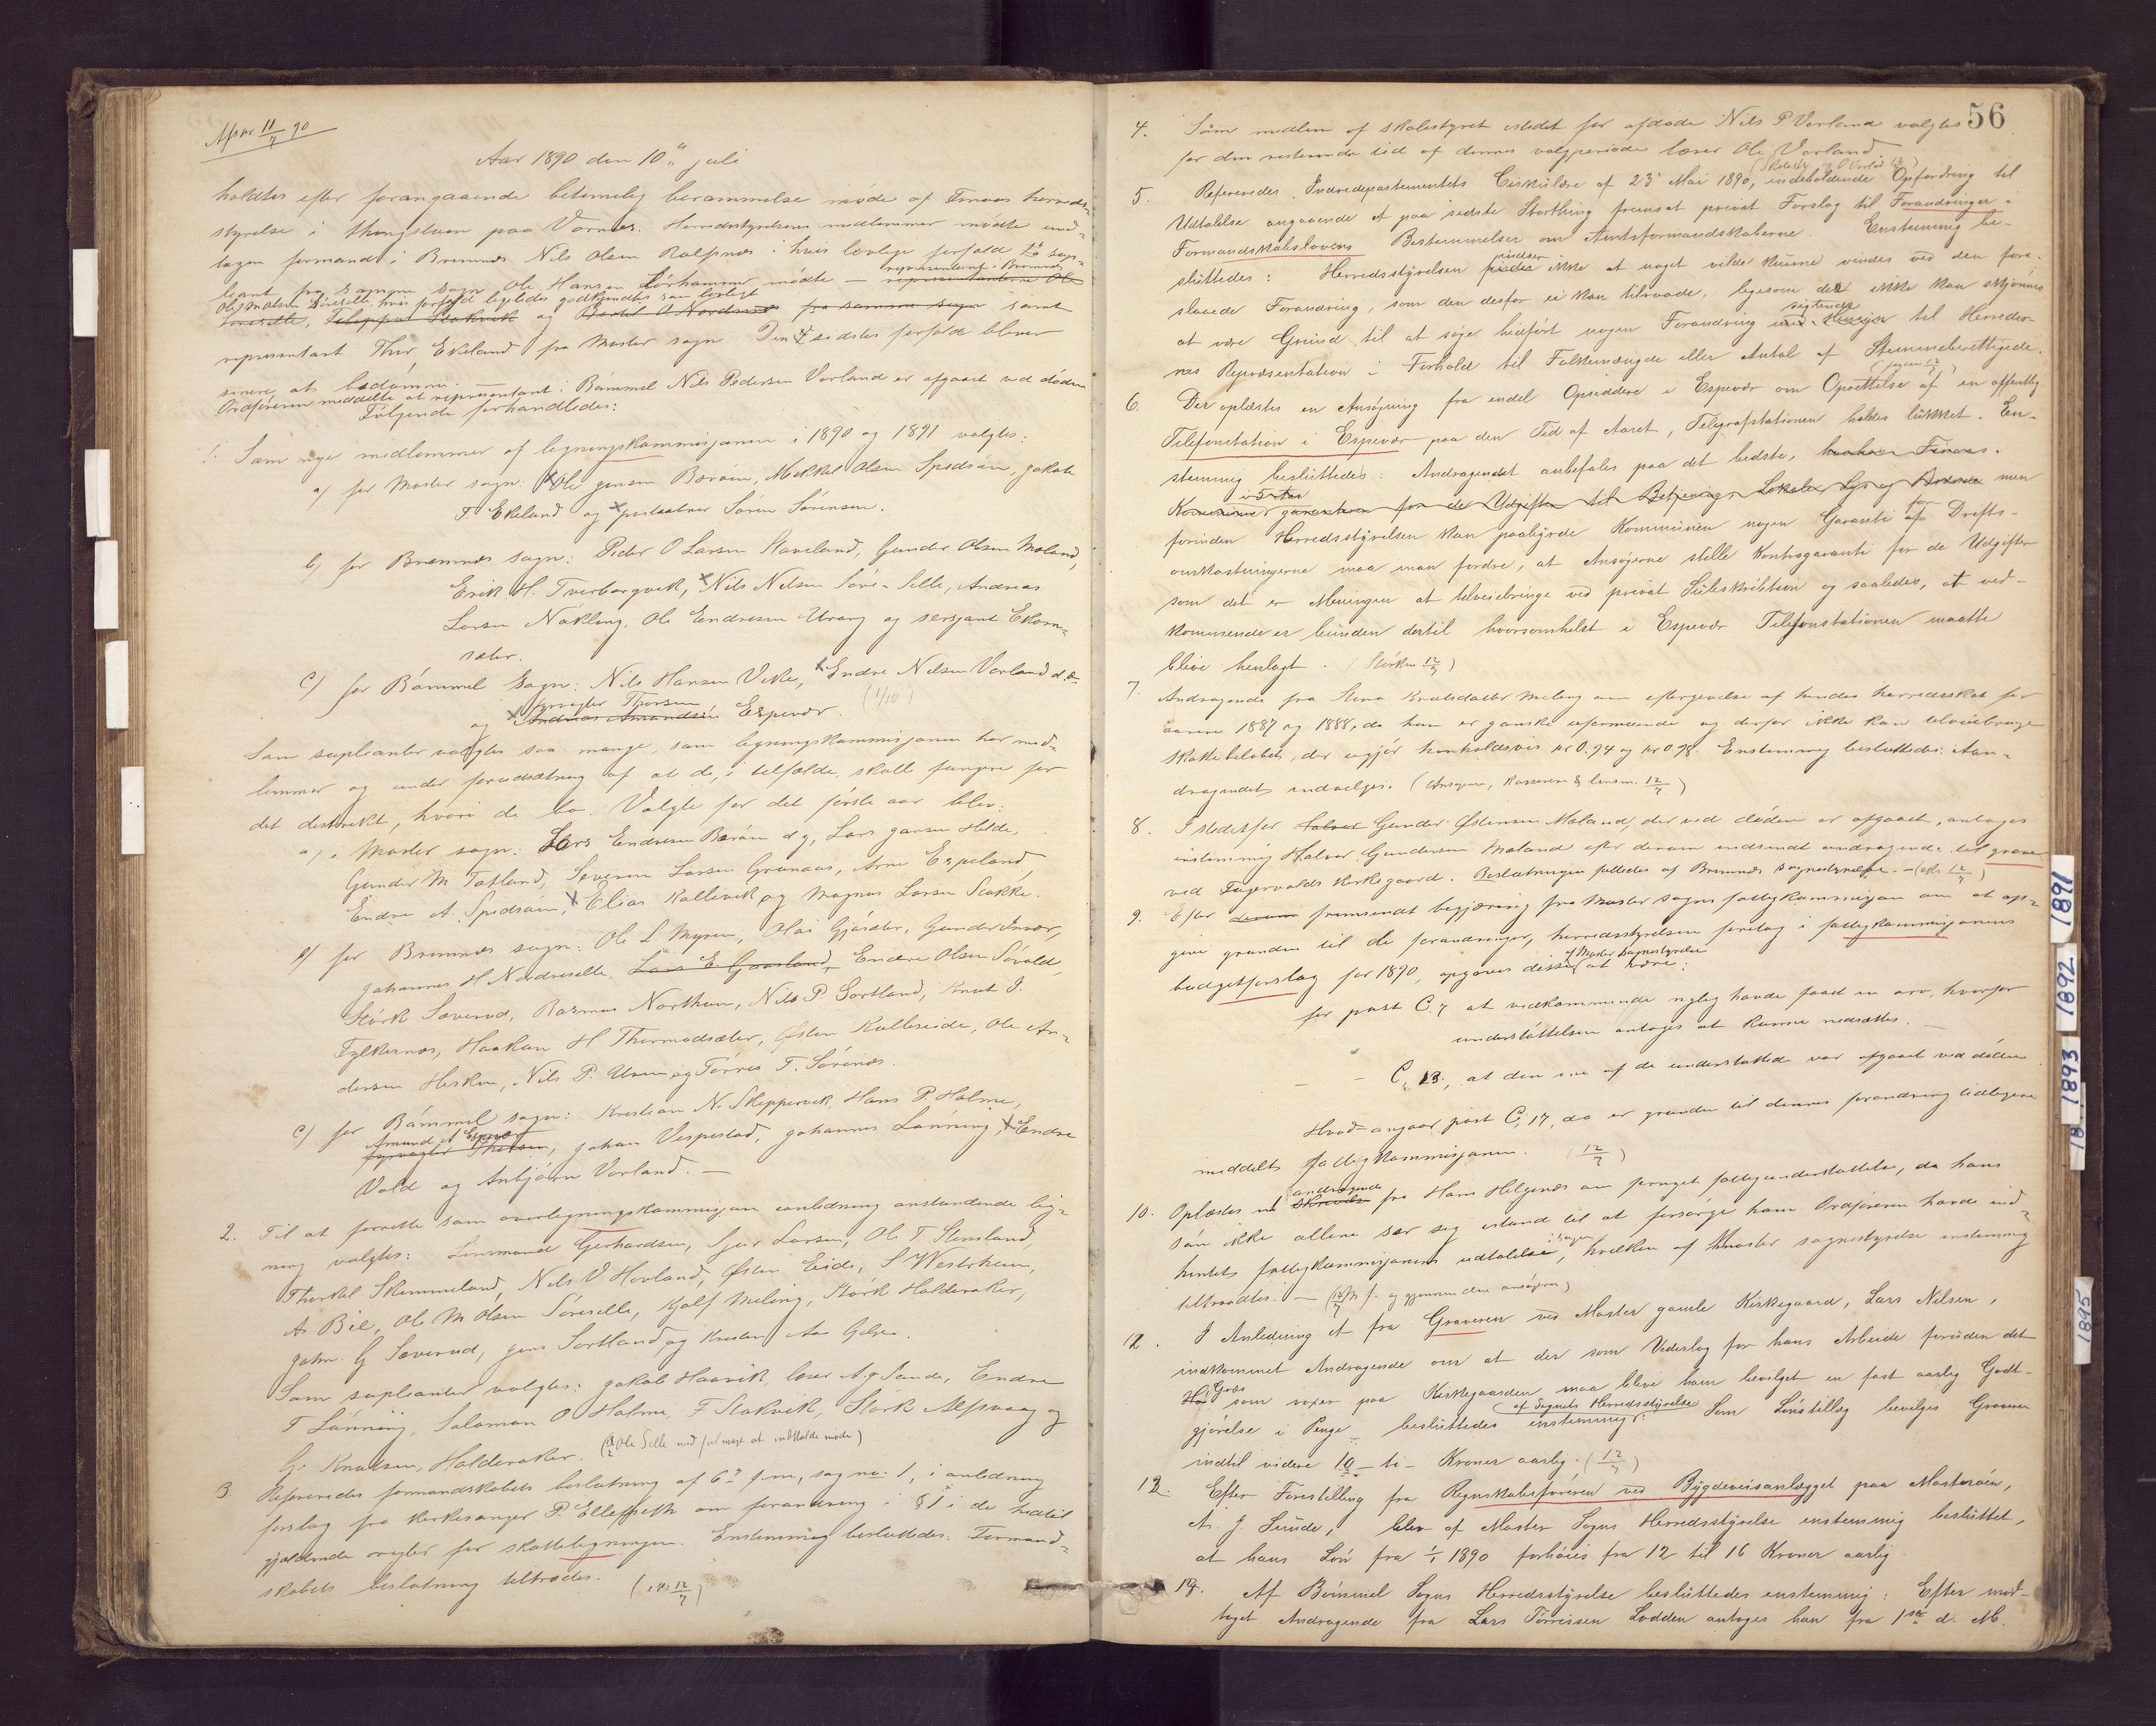 Afskr 11/7 90
Aar 1890 den 10de juli
holdtes efter forangaaende betimelig berammelse møde af Finaas herreds-
styrelse i thingstuen paa Vornes. Herredsstyrelsens medlemmer mødte und-
tagen formand i Bremnæs Nils Olsen Rolfsnæs i hvis lovlige forfald 1ste sup-
leant fra samme sogn Ole Hansen Lorhammer mødte — representanterne i Bremnæs Ole
Ols. M Olsen Søreselle, hvis forfald ligeledes godkjendtes som lovligt
Søreselle, Filippus Stokvik og Bertel O Nordnes fra samme sogn samt
representant Thor Ekeland fra Moster sogn. Den sidstes forfald bliver
senere at bedømme. —
Ordføreren meddelte at representant i Bømmel Nils Pedersen Vorland er afgaaet ved døden
Følgende forhandledes:
1. Som nye medlemmer af ligningskommisjonen i 1890 og 1891 valgtes:
a) for Moster sogn: Ole Jensen Bærøen, Mikkel Olsen Spidsøen, Jakob
T. Ekeland og postaabner Søren Sørensen.
b) for Bremnæs sogn: Peder O Larsen Staveland, Gunder Olsen Meland,
Erik H. Tverborgvik, Nils Nelsen Søre-Selle, Andreas
Larsen Nøkling, Ole Endresen Urang og sersjant Ekorn-
sæter.
c) for Bømmel Sogn: Nils Hansen Vike, Endre Nilsen Vorland d.æ
fyrvogter Thorsen (1/10)
og Andreas Amandsen Espevær.
Som suplianter valgtes saa mange, som ligningskommisjonen har med-
lemmer og under forudsætning af at de, i tilfælde, skulle fungere for
det distrikt, hvori de bo. Valgte for det første aar blev:
a) i Moster sogn: Lars Endresen Bærøen d y, Lars Jansen Hilde,
Gunder M Totland, Severin Larsen Grønaas, Arne Espeland,
Endre A. Spidsøen, Elias Kallevik og Magnus Larsen Stokke.
b) for Bremnæs sogn: Ole L Myren, Olai Gjøsæter, Gunder Innvær,
Johannes H Nedreselle, Lars E. Gaasland, Endre Olsen Søvold,
Størk Sæverud, Rasmus Northun, Nils P. Sortland, Knut J.
Fylkesnæs, Haakon H Thormodsæter, Østen Kulleseide, Ole An-
dersen Hisken, Nils P. Uren og Tørres T. Sørenæs.
c) for Bømmel sogn: Kristian N. Skeppervik, Hans P. Holme,
Amund A Espevær
fyrvogter Thorsen, Johan Vespestad, Johannes Lønning, Endre
Vold og Anbjørn Vorland. —
2. Til at forrette som overligningskommisjon i anledning anstundende lig-
ning valgtes: Lensmand Gerhardsen, Sjur Larsen, Ole T Stensland
Thorkel Skimmeland, Nils V Hovland, Østen Eide, S Westrheim,
A. Bie, Ole M Olsen Søreselle, Kjølf Meling, Størk Holderaker,
Johs. G Sæverud, Jens Sortland og Kristen Aa Gilje.
Som suplianter valgtes: Jakob Haavik, lærer A. J Sunde, Endre
T Lønning, Salomon O Holme, F Stokvik, Størk Alfsvaag og
G. Knutsen, Holderaker. (12/7 Ole Selle med fulmagt at indkalde møde)
3. Refereredes formandskabets beslutning af 6te f.m., sag no. 1, i anledning
forslag fra kirkesanger P. Ellefseth om forandring i § 1 i de hidtil
gjældende regler for skatteligningen. Enstemmig besluttedes: Formand-
skabets beslutning tiltrædes. (eks 12/7)
56
4. Som medlem af skolestyret istedet for afdøde Nils P Vorland valgtes
for den resterende tid af dennes valgperiode lærer Ole Vorland
(Skolesty. og O Vorld 12/7)
5. Refereredes Indredepartementets Cirkulære af 23de Mai 1890, indeholdende Opfordring til
Udtalelse angaaende et paa sidste Storthing fremsat privat Forslag til Forandringer i
Formandskabslovens Bestemmelser om Amtsformandskaberne. Enstemmig be-
sluttedes: Herredsstyrelsen finder indser ikke at noget vilde kunne vindes ved den fore-
slaaede Forandring, som den derfor ei kan tilraade, ligesom det ikke kan skjønnes
at være Grund til at søge hidført nogen Forandring med Hensyn sigtende til Herreder-
nes Repræsentation i Forhold til Folkemængde eller Antal af Stemmeberettigede.
6. Der oplæstes en Ansøgning fra endel Opsiddere i Espevær om Oprettelse af en offentlig
Telefonstation i Espevær paa den Tid af Aaret, Telegrafstationen holdes lukket. En-
stemmig besluttedes: Andragendet anbefales paa det bedste, hvorhos Finaas
Kommune i 5 Aar garanterer for de Udgifter til Betjening, Lokale, Lys og Brænde men
forinden Herredsstyrelsen kan paabyrde Kommunen nogen Garanti for Drifts-
omkostningerne maa man fordre, at Ansøgerne stille Kontragaranti for de Udgifter
som det er Meningen at tilveiebringe ved privat Subskribtion og saaledes, at ved-
kommende er bunden dertil hvorsomhelst i Espevær Telefonstationen maatte
blive henlagt. (Størksen 12/7)
7. Andragende fra Stina Knutsdatter Meling om eftergivelse af hendes herredsskat for
aarene 1887 og 1888, da hun er ganske uformuende og derfor ikke kan tilveiebringe
skattebeløbet, der udgjør henholdsvis kr 0.94 og kr 0.98. Enstemmig besluttedes: An-
dragendet indvilges. (Ansøgeren, Kassereren & lensm. 12/7)
8. I stedetfor Halvor Gunder Østensen Meland, der ved døden er afgaaet, antages
enstemmig Halvor Gundersen Meland efter derom indsendt andragende til graver
ved Fagervolds kirkegaard. Beslutningen fattedes af Bremnæs sognestyrelse. — (eks 12/7)
9. Efter derom fremsendt begjæring fra Moster sogns fattigkommisjon om at op-
give grunden til de forandringer, herredsstyrelsen foretog i fattigkommisjonens
budgetforslag for 1890, opgaves disse af Moster Sognestyrelse at være:
for post C. 7 at vedkommende nylig havde faaet en arv, hvorfor
understøttelsen antoges at kunne nedsættes. —
— — C. 13., at den ene af de understøttede var afgaaet ved døden
Hvad angaar post C. 17, da er grunden til dennes forandring tidligere
meddelt fattigkommisjonen. (12/7)
10. Oplæstes et skrivelse andragende fra Hans Helgenæs om forøget fattigunderstøttelse, da hans
søn ikke allene ser sig istand til at forsørge ham. Ordføreren havde ind-
hentet fattigkommisjonens udtalelse i sagen, hvilken af Moster sognestyrelse enstemmig
tiltraadtes. — (12/7 M f. og gjennem den ansøgeren)
12. I Anledning et fra Graveren ved Moster gamle Kirkegaard, Lars Nilsen,
indkommet Andragende om at der som Vederlag for hans Arbeide foruden det
Hø Græs som voxer paa Kirkegaarden maa blive ham bevilget en fast aarlig Godt-
gjørelse i Penge — besluttedes af Sognets Herredsstyrelse enstemmig: Som Lønstillæg bevilges Graveren
indtil videre 10 — ti — Kroner aarlig. (12/7)
12. Efter Forestilling fra Regnskabsføreren ved Bygdeveisanlægget paa Mosterøen,
A. J Sunde, blev af Moster Sogns Herredsstyrelse enstemmig besluttet,
at hans Løn fra 1/1 1890 forhøies fra 12 til 16 Kroner aarlig
14. Af Bømmel Sogns Herredsstyrelse besluttedes enstemmig: Efter mod-
taget Andragende fra Lars Tørrissen Lodden antages han fra 1ste d. M.
1891
1892
1893
18
1895